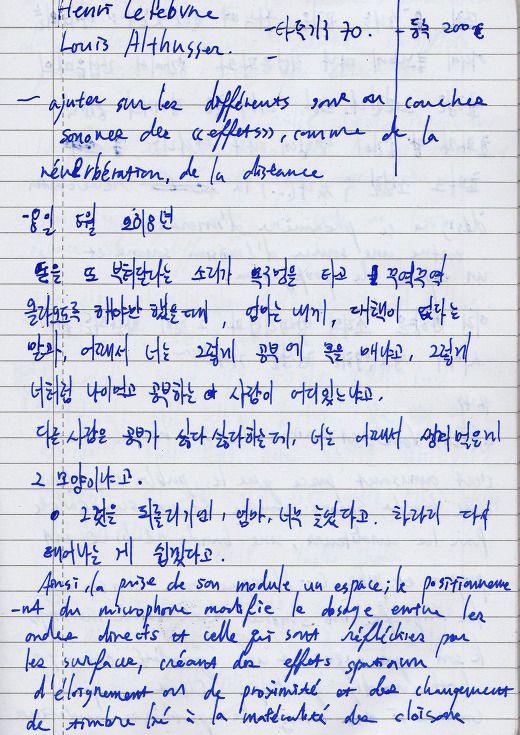 Henri Lefebvre
Louis Althusser. - 70. - 200€
-
- ajuter sur les différents sons ou couches
sonores des «effets», comme de la
réverbération, de la distance
-8일 5월 2018년
돈을 또 부쳐달라는 소리가 목구멍을 타고 꾸역꾸역
올라오도록 해야만 했을 때, 엄마는 내게, 대책이 없다는
말과, 어째서 너는 그렇게 공부에 목을 매냐고, 그렇게
너처럼 나이먹고 공부하는 사람이 어디있느냐고.
다른 사람은 공부가 싫다 싫다하는데, 너는 어째서 생겨먹은게
그 모양이냐고.
그것을 되돌리기엔, 엄마, 너무 늦었다고. 차라리 다시
태어나는 게 쉽겠다고.
Ainsi, la prise de son module un espace; le positionneme
-nt du microphone modifie le dosage entre les
ondes directs et celle qui sont réfléchies par
les surface, créant des effets
d'éloignement ou de proximité et des changement
de timbre lié à la matérialité des cloisons